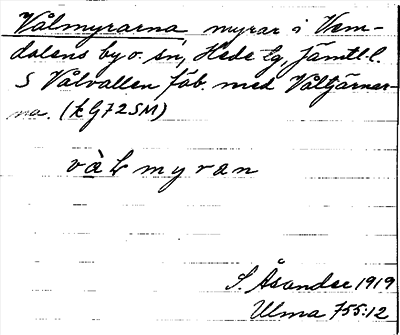 Vålmyrarna, myrar i Vem-
dalens by o. sn, Hede tg, Jämtl. l.
S Vålvallen fäb. med Våltjärnar-
na. (k G72SM)
vàLmyran
S. Åsander 1919
Ulma 755:12